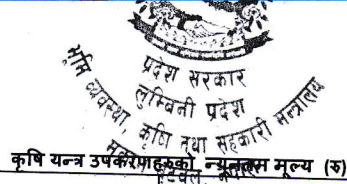 प्रदेश सरकार
लुम्बिनी प्रदेश
भूमि व्यवस्था, कृषि तथा सहकारी मन्त्रालय
कृषि यन्त्र उपकरणहरुको न्यूनतम मूल्य (रु)